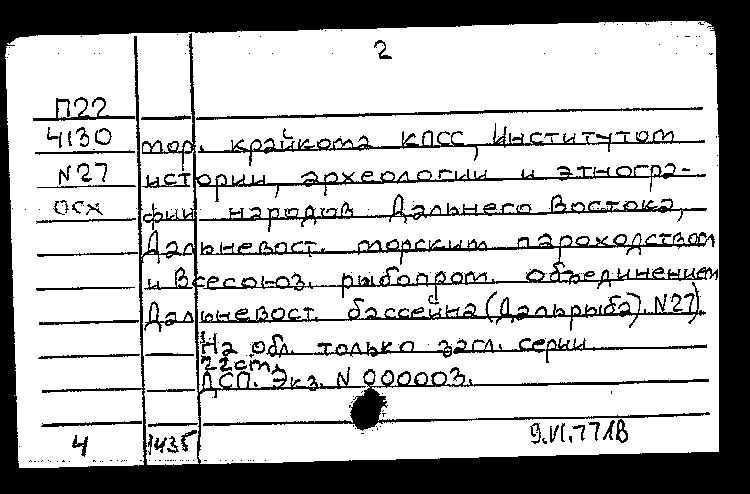 2
П22
4130 мор. крайкома КПСС, Институтом
N27 истории, археологии и этногра-
осх фии народов Дальнего Востока,
Дальневост. морским пароходством
и Всесоюз. рыбопром. объединением
Дальневост. бассейна (Дальрыба). N27).
На обл. только загл. серии.
22 см.
ДСП. Экз. N 000003.
4 1435 9.VI.77